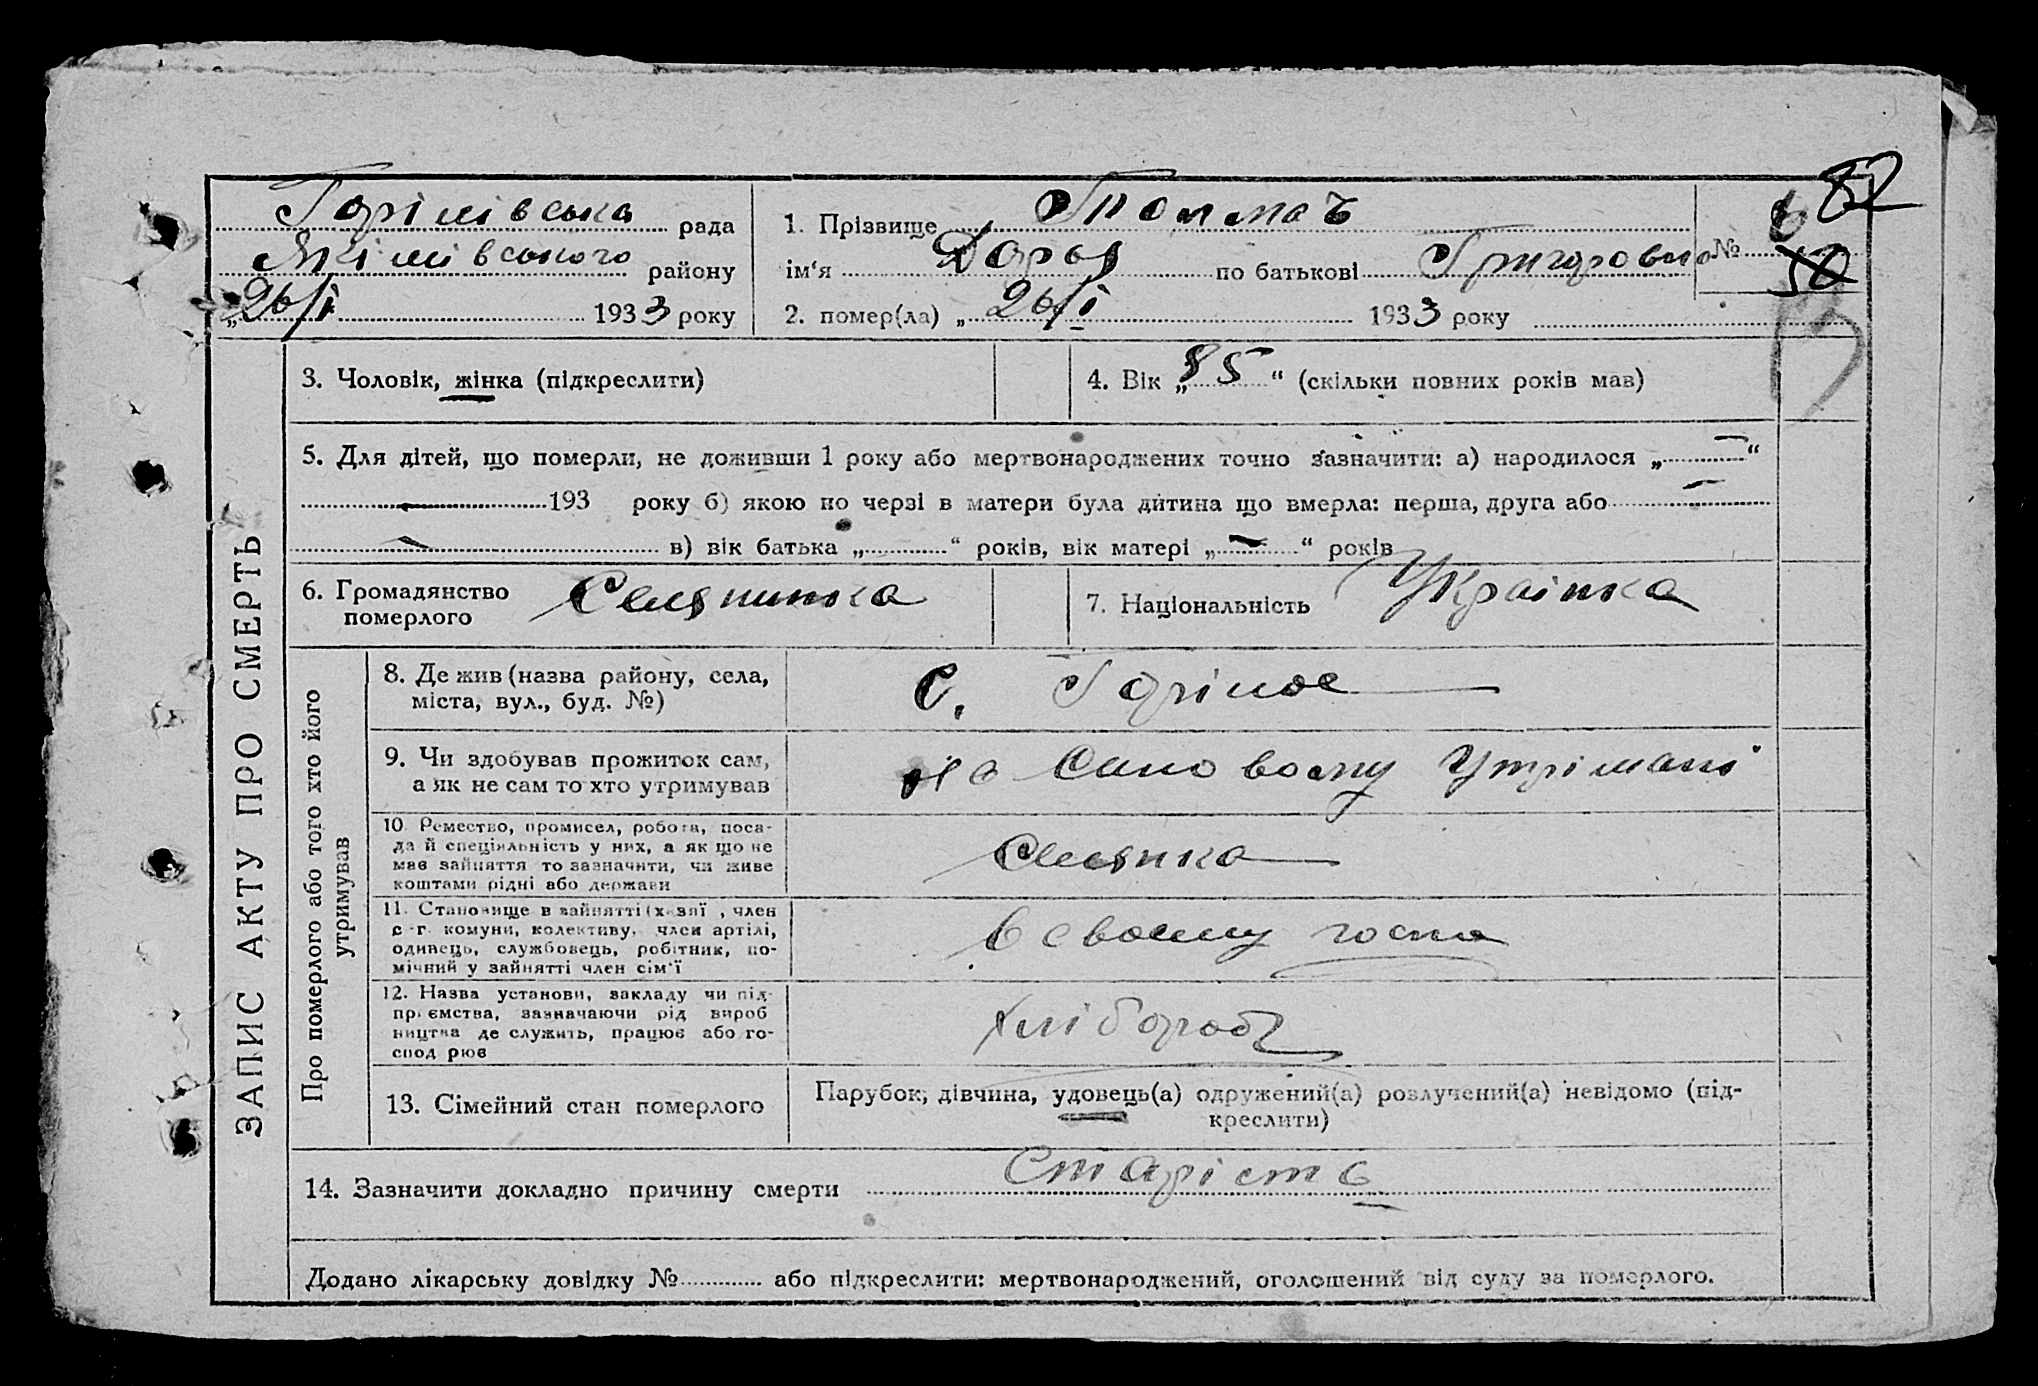 Горілівська рада
Якімівського району
„26/І 1933 року
1. Прізвище Толмач
ім‘я Дарья по батькові Григоровна
№ 6
82
50
2. помер(ла) „26/І 1933 року
3. Чоловік, жінка (підкреслити)
4. Вік „85“ (скільки повних років мав)
5. Для дітей, що померли, не доживши 1 року або мертвонароджених точно зазначити: а) народилося „—“
— 193 року б) якою по черзі в матери була дитина що вмерла: перша, друга або —
— в) вік батька „ “ років, вік матері „—“ років
6. Громадянство померлого Селянинка
7. Національність Українка
ЗАПИС АКТУ ПРО СМЕРТЬ
Про померлого або того хто його утримував
8. Де жив (назва району, села,
міста, вул., буд. №)
с. Горіное
9. Чи здобував прожиток сам,
а як не сам то хто утримував
на синовому утрімані
10. Ремество, промисел, робота, поса-
да й спеціяльність у них, а як що не
має зайняття то зазначити, чи живе
коштами рідні або держави
Селянка
11. Становище в зайнятті (хазяї, член
с-г. комуни, колективу, член артілі,
одинець, службовець, робітник, по-
мічний у зайнятті член сім‘ї
в своєму госпо
12. Назва установи, закладу чи під-
приємства, зазначаючи рід вироб
ництва де служить, працює або го-
спод рює
хлібороб
13. Сімейний стан померлого
Парубок, дівчина, удовець(а) одружений(а) розлучений(а) невідомо (під-
креслити)
14. Зазначити докладно причину смерти Старіста
Додано лікарську довідку № або підкреслити: мертвонароджений, оголошений від суду за померлого.